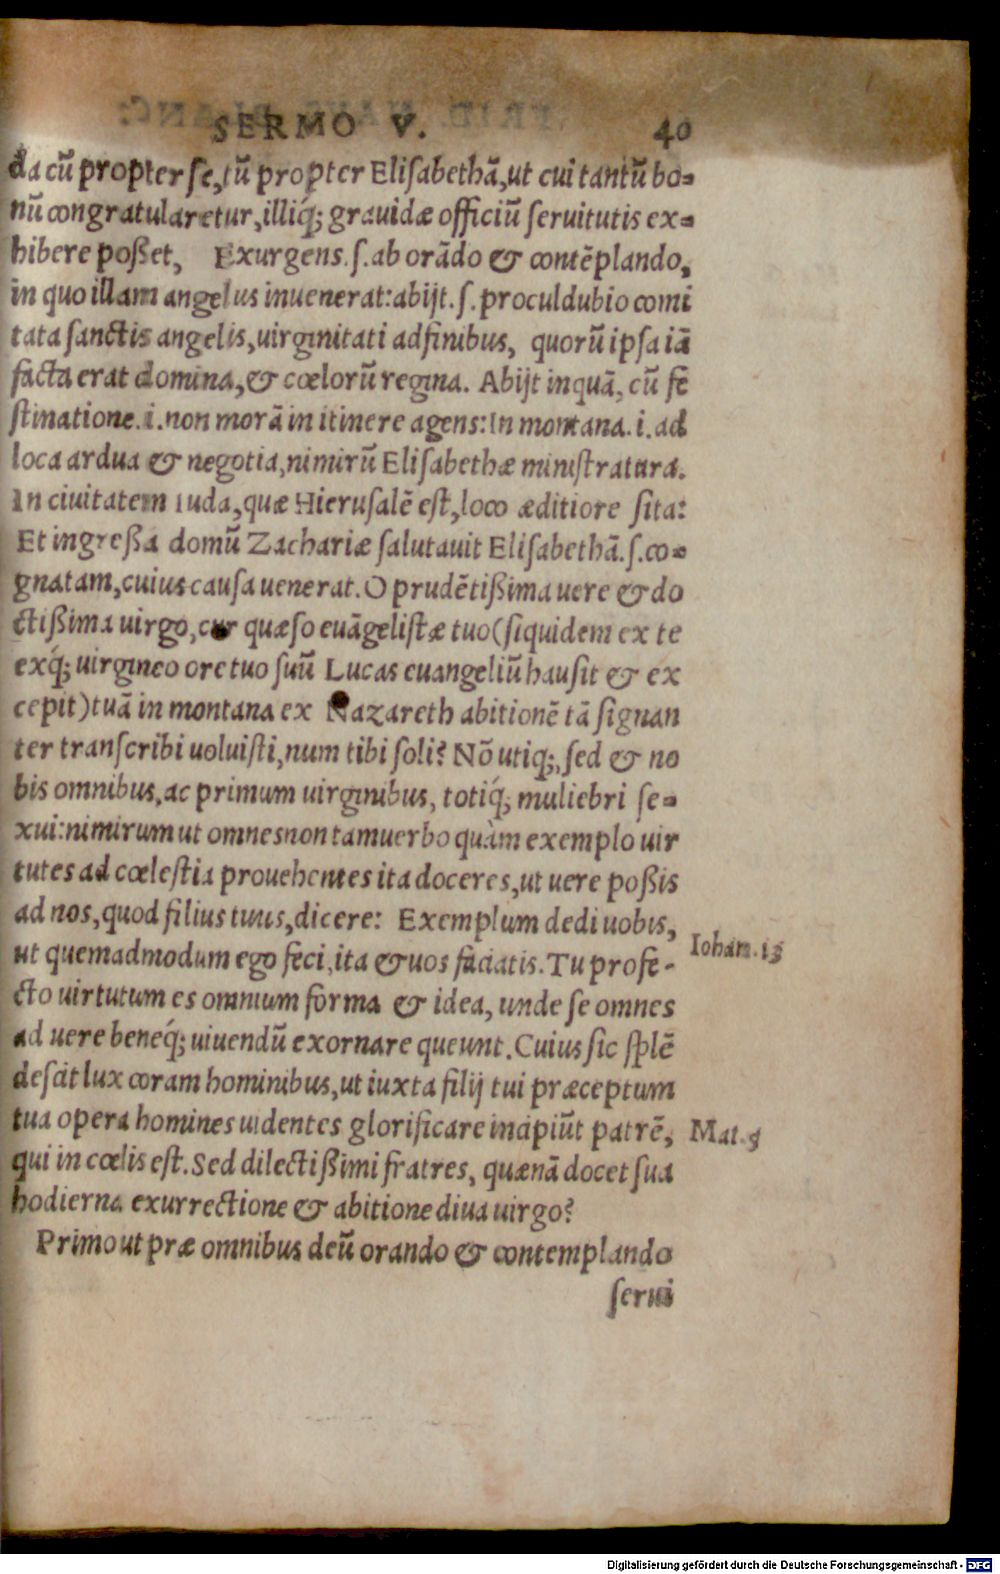 SERMO V. 40
da cū propter se, tū propter Elisabethā, ut cui tantū bo-
nū congratularetur, illiq́; grauidæ officiū seruitutis ex-
hibere poßet, Exurgens. s. ab orādo & contēplando,
in quo illam angelus inuenerat: abijt. s. proculdubio comi
tata sanctis angelis, uirginitati adfinibus, quorū ipsa iā
facta erat domina, & cœlorū regina. Abijt inquā, cū fe
stinatione. i. non morā in itinere agens: In montana. i. ad
loca ardua & negotia, nimirū Elisabethæ ministratura.
In ciuitatem Iuda, quæ Hierusalē est, loco æditiore sita:
Et ingreßa domū Zachariæ salutauit Elisabethā. s. co-
gnatam, cuius causa uenerat. O prudētißima uere & do
ctißima uirgo, cur quæso euāgelistæ tuo (siquidem ex te
exq́; uirgineo ore tuo suū Lucas euangeliū hausit & ex
cepit) tuā in montana ex Nazareth abitionē tā signan
ter transcribi uoluisti, num tibi soli? Nō utiq;, sed & no
bis omnibus, ac primum uirginibus, totiq́; muliebri se-
xui: nimirum ut omnes non tam uerbo quàm exemplo uir
tutes ad cœlestia prouehentes ita doceres, ut uere poßis
ad nos, quod filius tuus, dicere: Exemplum dedi uobis,
ut quemadmodum ego feci, ita & uos faciatis. Tu profe-
Iohan. 13
cto uirtutum es omnium forma & idea, unde se omnes
ad uere beneq́; uiuendū exornare queunt. Cuius sic splē
descit lux coram hominibus, ut iuxta filij tui præceptum
tua opera homines uidentes glorificare incipiūt patrē,
Mat. 5
qui in cœlis est. Sed dilectißimi fratres, quænā docet sua
hodierna exurrectione & abitione diua uirgo?
Primo ut præ omnibus deū orando & contemplando
serui
Digitalisierung gefördert durch die Deutsche Forschungsgemeinschaft - DFG